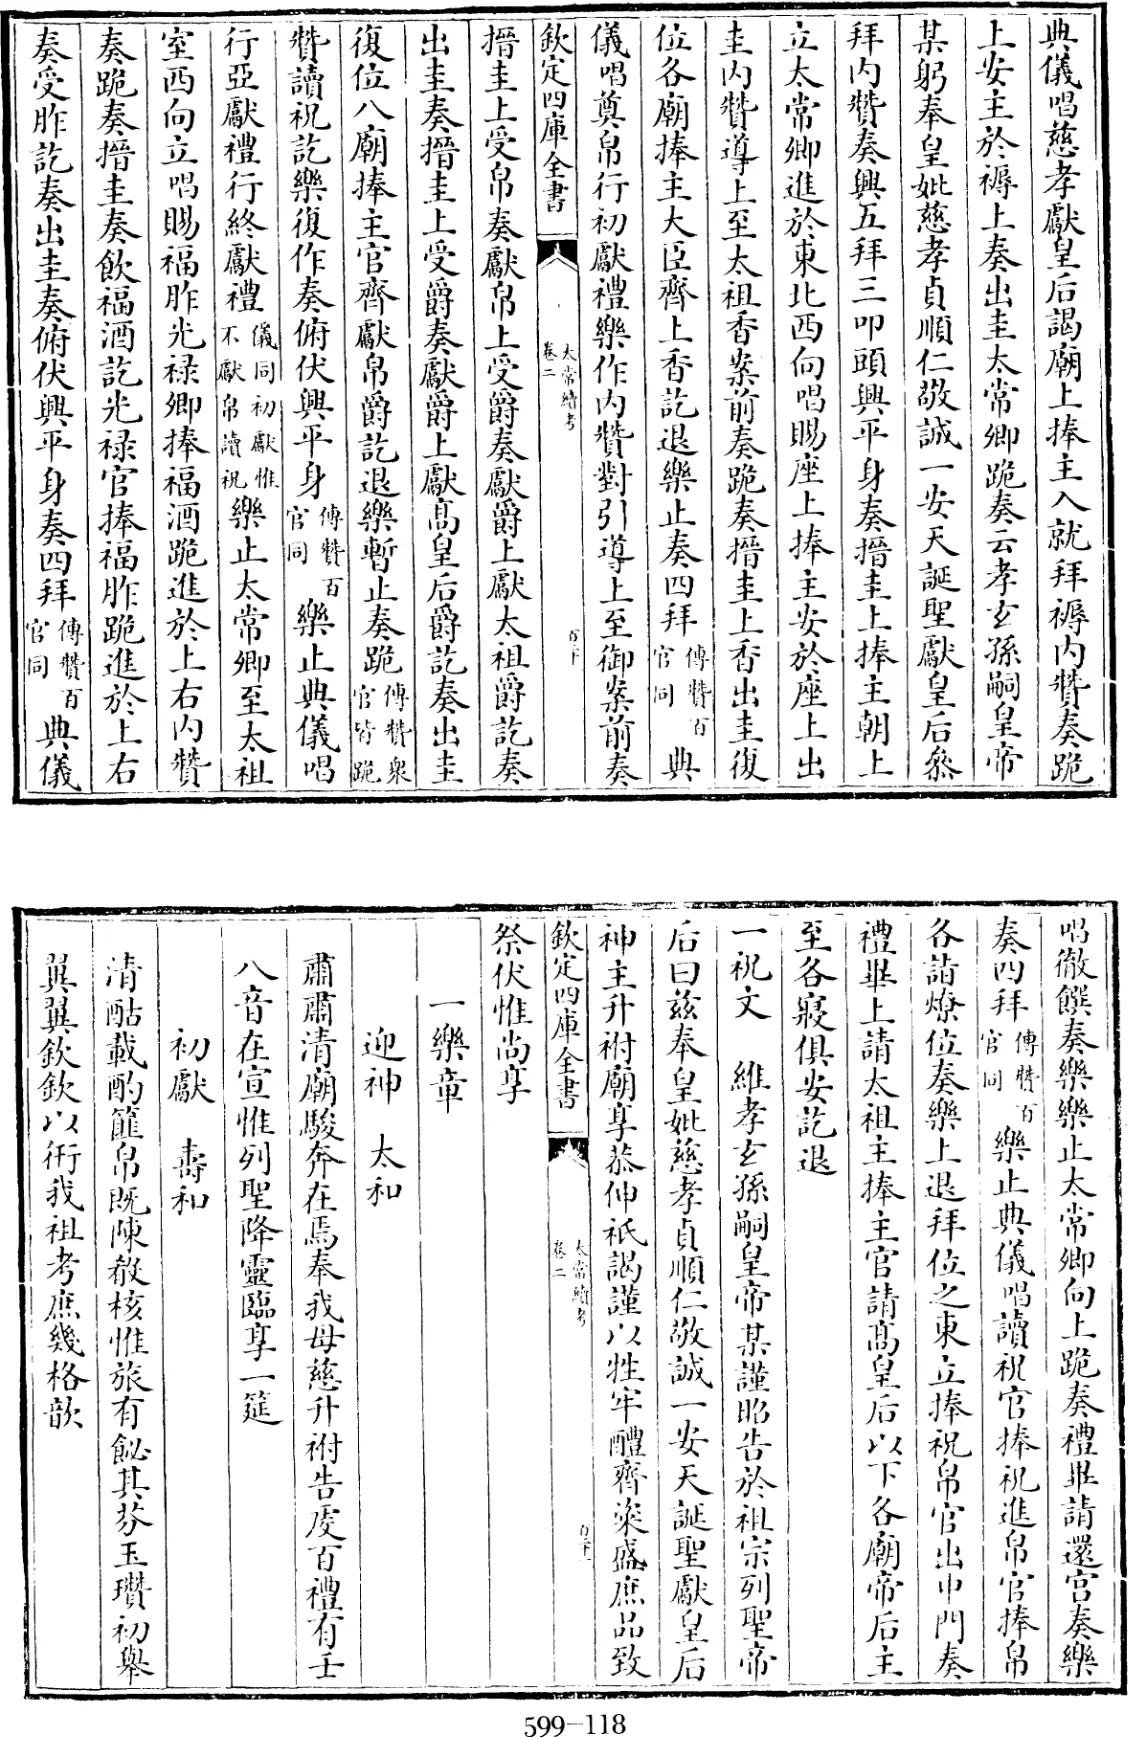 典儀唱慈孝獻皇后謁廟上捧主入就拜褥内贊奏跪
上安主於褥上奏出圭太常卿跪奏云孝玄孫嗣皇帝
某躬奉皇妣慈孝貞順仁敬誠一安天誕聖獻皇后叅
拜内贊奏興五拜三叩頭興平身奏搢圭上捧主朝上
立太常卿進於東北西向唱賜座上捧主安於座上出
圭内贊導上至太祖香案前奏跪奏搢圭上香出圭復
位各廟捧主大臣齊上香訖退樂止奏四拜傳贊百官同典
儀唱奠帛行初獻禮樂作内贊對引導上至御案前奏
欽定四庫全書
太常續考
卷二
百二十
搢圭上受帛奏獻帛上受爵奏獻爵上獻太祖爵訖奏
出圭奏搢圭上受爵奏獻爵上獻高皇后爵訖奏出圭
復位八廟捧主官齊獻帛爵訖退樂暫止奏跪傳贊衆官皆跪
贊讀祝訖樂復作奏俯伏興平身傳贊百官同樂止典儀唱
行亞獻禮行終獻禮儀同初獻惟不獻帛讀祝樂止太常卿至太祖
室西向立唱賜福胙光禄卿捧福酒跪進於上右内贊
奏跪奏搢圭奏飲福酒訖光禄官捧福胙跪進於上右
奏受胙訖奏出圭奏俯伏興平身奏四拜傳贊百官同典儀
唱徹饌奏樂樂止太常卿向上跪奏禮畢請還宫奏樂
奏四拜傳贊百官同樂止典儀唱讀祝官捧祝進帛官捧帛
各詣燎位奏樂上退拜位之東立捧祝帛官出中門奏
禮畢上請太祖主捧主官請高皇后以下各廟帝后主
至各寢俱安訖退
一祝文　維孝玄孫嗣皇帝某謹昭告於祖宗列聖帝
后曰兹奉皇妣慈孝貞順仁敬誠一安天誕聖獻皇后
神主升祔廟享恭伸祗謁謹以牲牢醴齊粢盛庶品致
欽定四庫全書
太常續考
卷二
祭伏惟尚享
一樂章
迎神　太和
肅肅清廟駿奔在焉奉我母慈升祔告虔百禮有壬
八音在宣惟列聖降靈臨享一筵
初獻　壽和
清酤載酌篚帛既陳殽核惟旅有飶其芬玉瓚初舉
翼翼欽欽以衎我祖考庶幾格歆
599-118